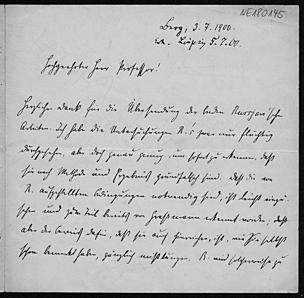 NE180145
Berg, 3. 7. 1900.
Leipzig 5. 7. 00.
Hochgeehrter Herr Professor!
Herzlichen Dank für die Übersendung der beiden
Arbeiten. Ich habe die Untersuchungen R.'s zwar nur flüchtig
durchgesehen, aber doch genau genug, um sofort zu erkennen, daß
sie nach Methode und Ergebniß grundfalsch sind. Daß die von
R. aufgestellten Bedingungen nothwendig sind, ist leicht einzu-
sehen und zum Teil bereits von Graßmann erkannt worden, daß
aber der Beweis dafür, daß sie auch hinreichen, ist, wie Sie selbst
schon bemerkt haben, gänzlich mißlungen. R. und